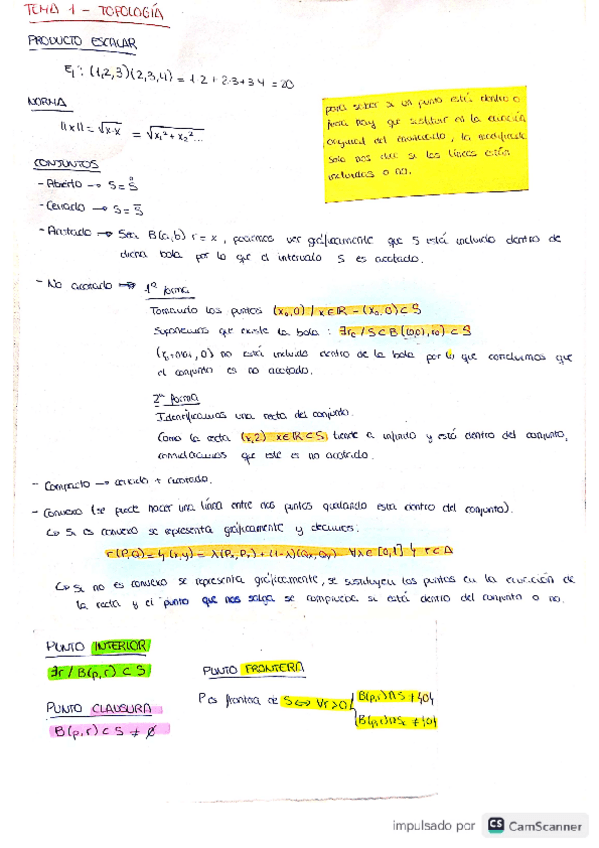 TEMA 1 - TOPOLOGÍA
PRODUCTO ESCALAR
Ej: (1,2,3)(2,3,4) = 1·2 + 2·3 + 3·4 = 20
NORMA
||x|| = √x·x = √x₁² + x₂²...
para saber si un punto está dentro o
fuera hay que sustituir en la ecuación
original del enunciado, la modificada
solo nos dice si las líneas están
incluidas o no.
CONJUNTOS
- Abierto → S = S̊
- Cerrado → S = S̄
- Acotado → Sea B(a,b) r = x, podemos ver gráficamente que S está incluido dentro de
dicha bola por lo que el intervalo S es acotado.
- No acotado → 1ª forma
Tomando los puntos (x₀,0) / x∈ℝ - (x₀,0) ⊂ S
Suponemos que existe la bola : ∃r₀ / S ⊂ B((0,0), r₀) ⊂ S
, 0) no está incluido dentro de la bola por lo que concluimos que
el conjunto es no acotado.
2ª forma
Identificamos una recta del conjunto.
Como la recta (x,2) x∈ℝ ⊂ S, tiende a infinito y está dentro del conjunto,
concluimos que este es no acotado.
- Compacto → cerrado + acotado.
- Convexo (se puede hacer una línea entre dos puntos quedando esta dentro del conjunto).
↳ Si es convexo se representa gráficamente y decimos:
r(P,Q) = { (x,y) = λ(Px,Py) + (1-λ)(Qx,Qy) ∀λ∈[0,1] } r ⊂ A
↳ Si no es convexo se representa gráficamente, se sustituyen los puntos en la ecuación de
la recta y el punto que nos salga se comprueba si está dentro del conjunto o no.
PUNTO INTERIOR
∃r / B(p,r) ⊂ S
PUNTO FRONTERA
P es frontera de S ⇔ ∀r>0 / B(p,r)∩S ≠ {∅}
B(p,r)∩Sᶜ ≠ {∅}
PUNTO CLAUSURA
B(p,r) ⊂ S ≠ ∅
impulsado por CS CamScanner